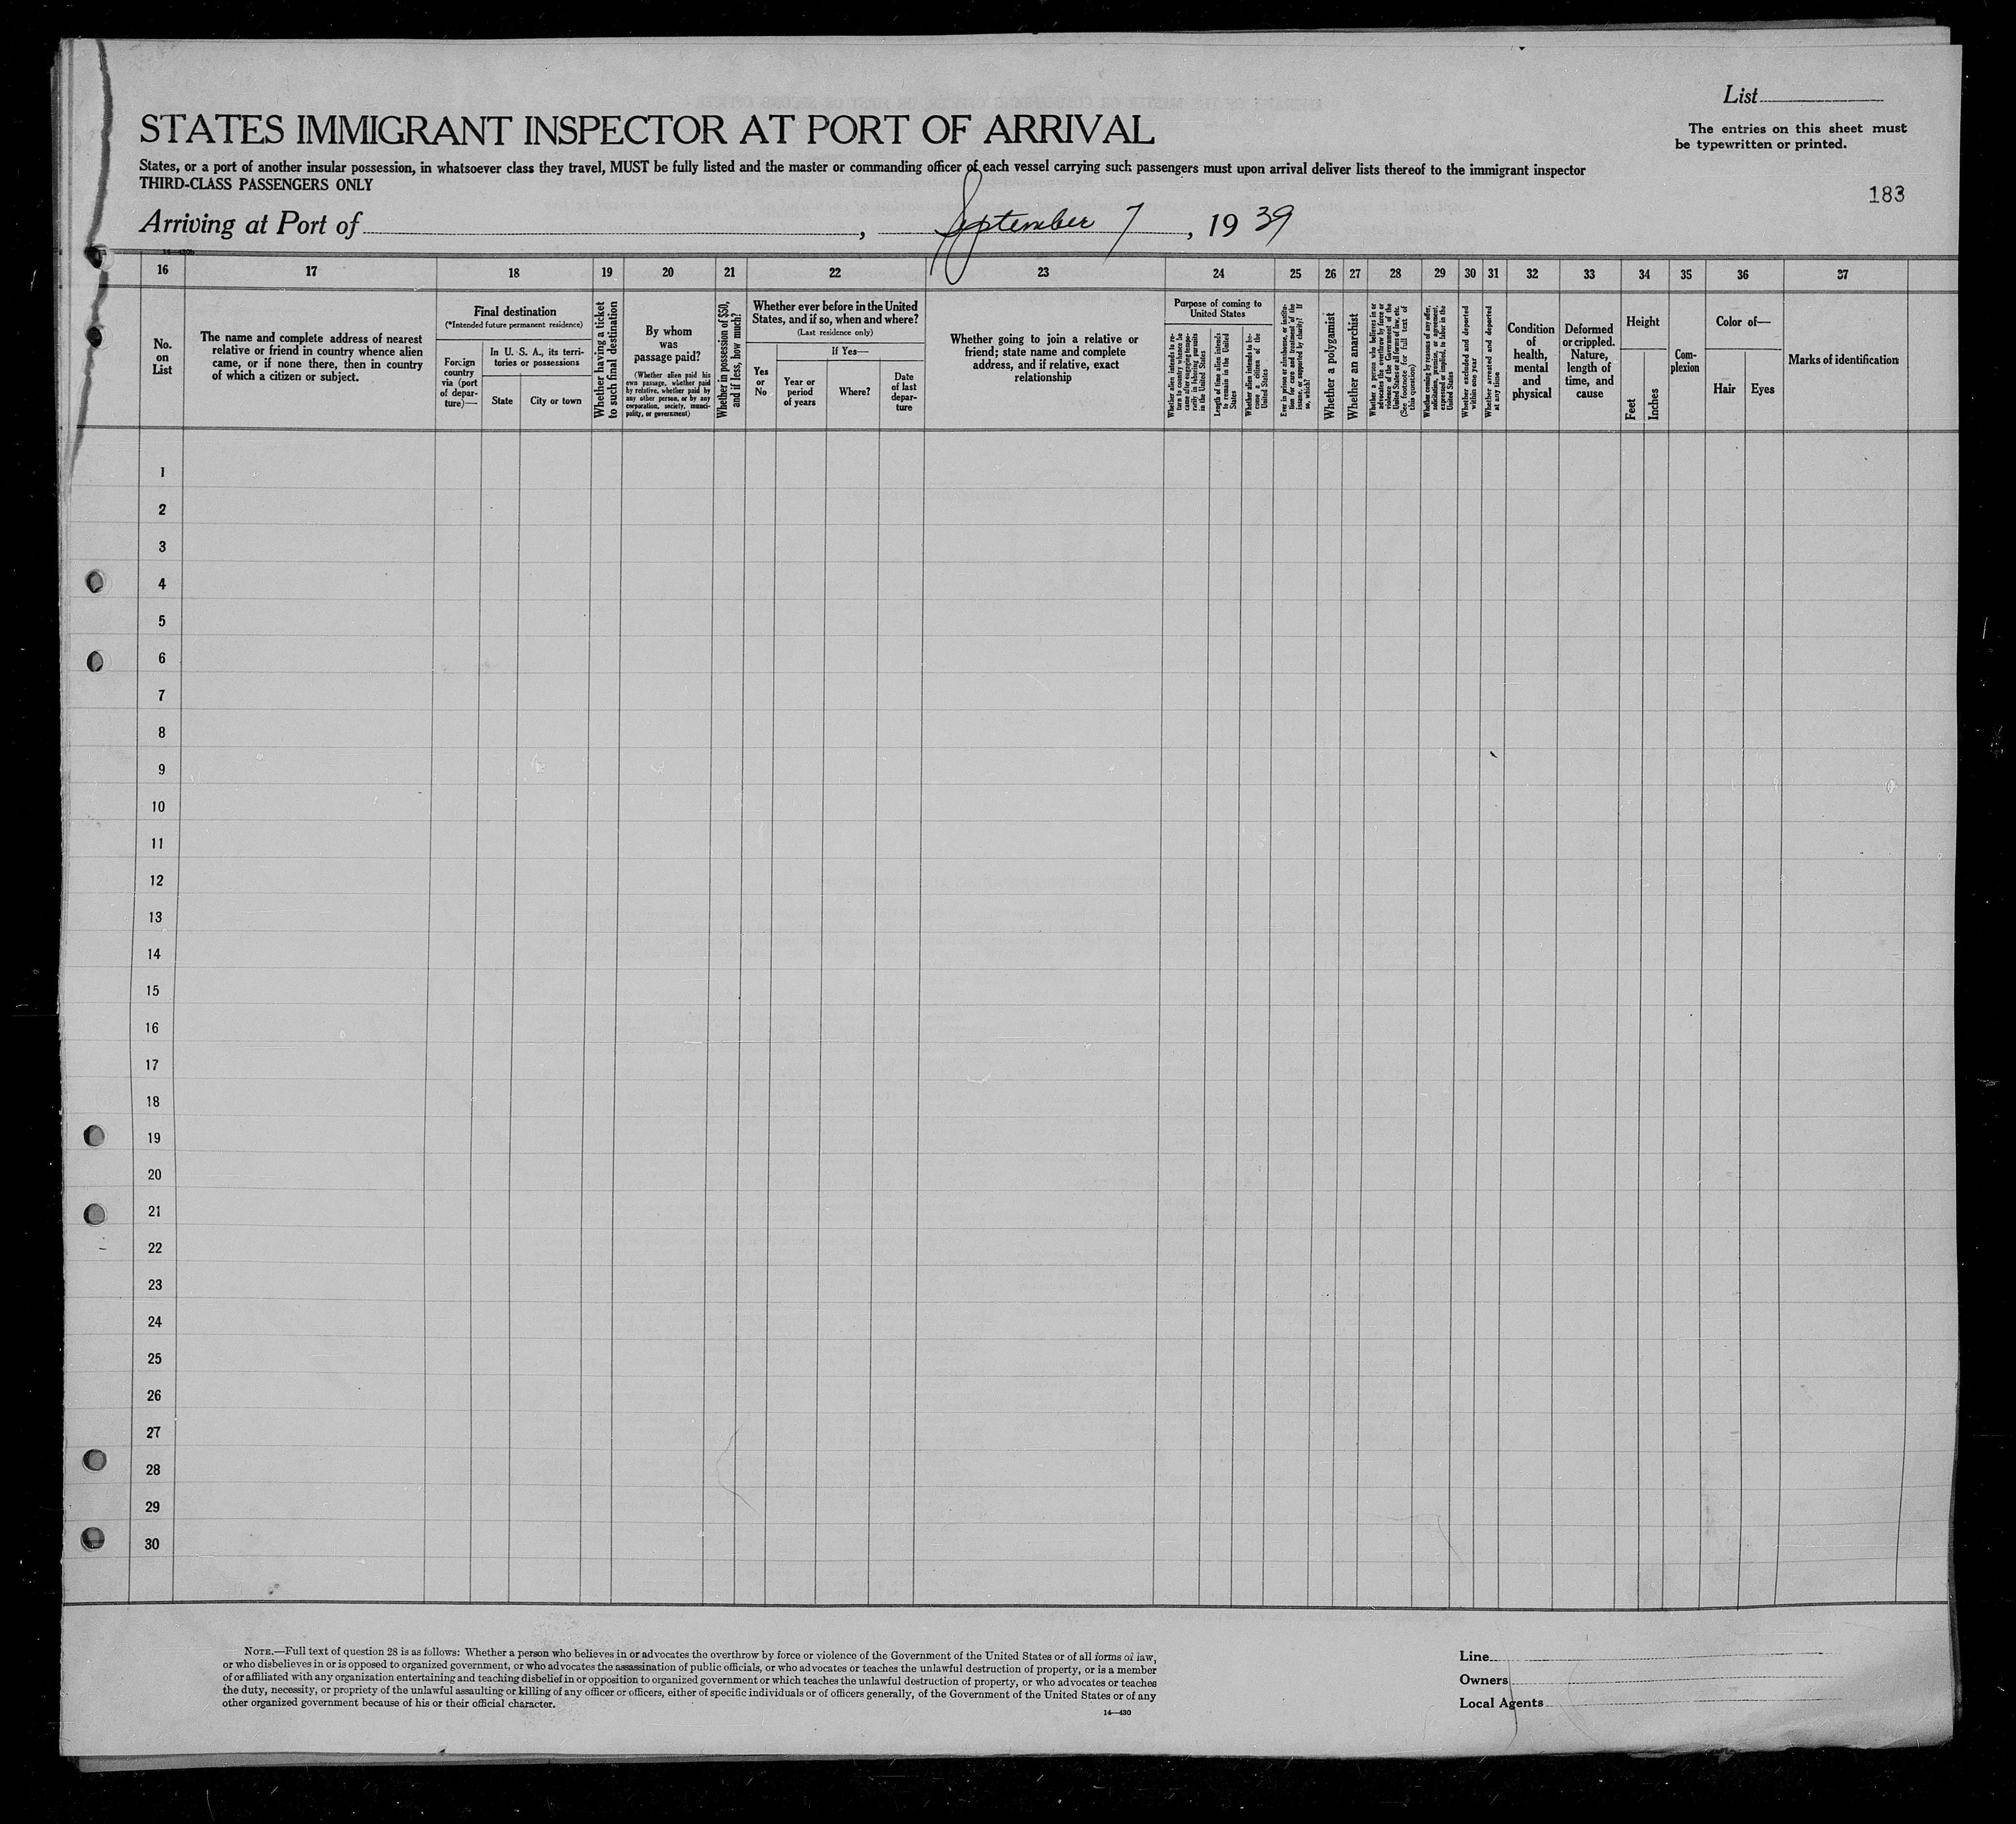 List
STATES IMMIGRANT INSPECTOR AT PORT OF ARRIVAL
The entries on this sheet must
be typewritten or printed.
States, or a port of another insular possession, in whatsoever class they travel, MUST be fully listed and the master or commanding officer of each vessel carrying such passengers must upon arrival deliver lists thereof to the immigrant inspector
THIRD-CLASS PASSENGERS ONLY
183
Arriving at Port of , September 7 , 19 39
16 17 18 19 20 21 22 23 24 25 26 27 28 29 30 31 32 33 34 35 36 37
No.
on
List
The name and complete address of nearest
relative or friend in country whence alien
came, or if none there, then in country
of which a citizen or subject.
Final destination
(*Intended future permanent residence)
Foreign
country
via (port
of depar-
ture)—
In U. S. A., its terri-
tories or possessions
State
City or town
Whether having a ticket
to such final destination
By whom
was
passage paid?
(Whether alien paid his
own passage, whether paid
by relative, whether paid by
any other person, or by any
corporation, society, munici-
pality, or government)
Whether in possession of $50,
and if less, how much?
Whether ever before in the United
States, and if so, when and where?
(Last residence only)
Yes
or
No
If Yes—
Year or
period
of years
Where?
Date
of last
depar-
ture
Whether going to join a relative or
friend; state name and complete
address, and if relative, exact
relationship
Purpose of coming to
United States
Whether alien intends to re-
turn to country whence he
came after engaging tempo-
rarily in laboring pursuits
in the United States
Length of time alien intends
to remain in the United
States
Whether alien intends to be-
come a citizen of the
United States
Ever in prison or almshouse, or institu-
tion for care and treatment of the
insane, or supported by charity? If
so, which?
Whether a polygamist
Whether an anarchist
Whether a person who believes in or
advocates the overthrow by force or
violence of the Government of the
United States or all forms of law, etc.
(See footnote for full text of
this question)
Whether coming by reasons of any offer,
solicitation, promise, or agreement,
expressed or implied, to labor in the
United States
Whether excluded and deported
within one year
Whether arrested and deported
at any time
Condition
of
health,
mental
and
physical
Deformed
or crippled.
Nature,
length of
time, and
cause
Height
Feet
Inches
Com-
plexion
Color of—
Hair
Eyes
Marks of identification
1
2
3
4
5
6
7
8
9
10
11
12
13
14
15
16
17
18
19
20
21
22
23
24
25
26
27
28
29
30
NOTE.—Full text of question 28 is as follows: Whether a person who believes in or advocates the overthrow by force or violence of the Government of the United States or of all forms of law,
or who disbelieves in or is opposed to organized government, or who advocates the assassination of public officials, or who advocates or teaches the unlawful destruction of property, or is a member
of or affiliated with any organization entertaining and teaching disbelief in or opposition to organized government or which teaches the unlawful destruction of property, or who advocates or teaches
the duty, necessity, or propriety of the unlawful assaulting or killing of any officer or officers, either of specific individuals or of officers generally, of the Government of the United States or of any
other organized government because of his or their official character.
14—430
Line
Owners
Local Agents